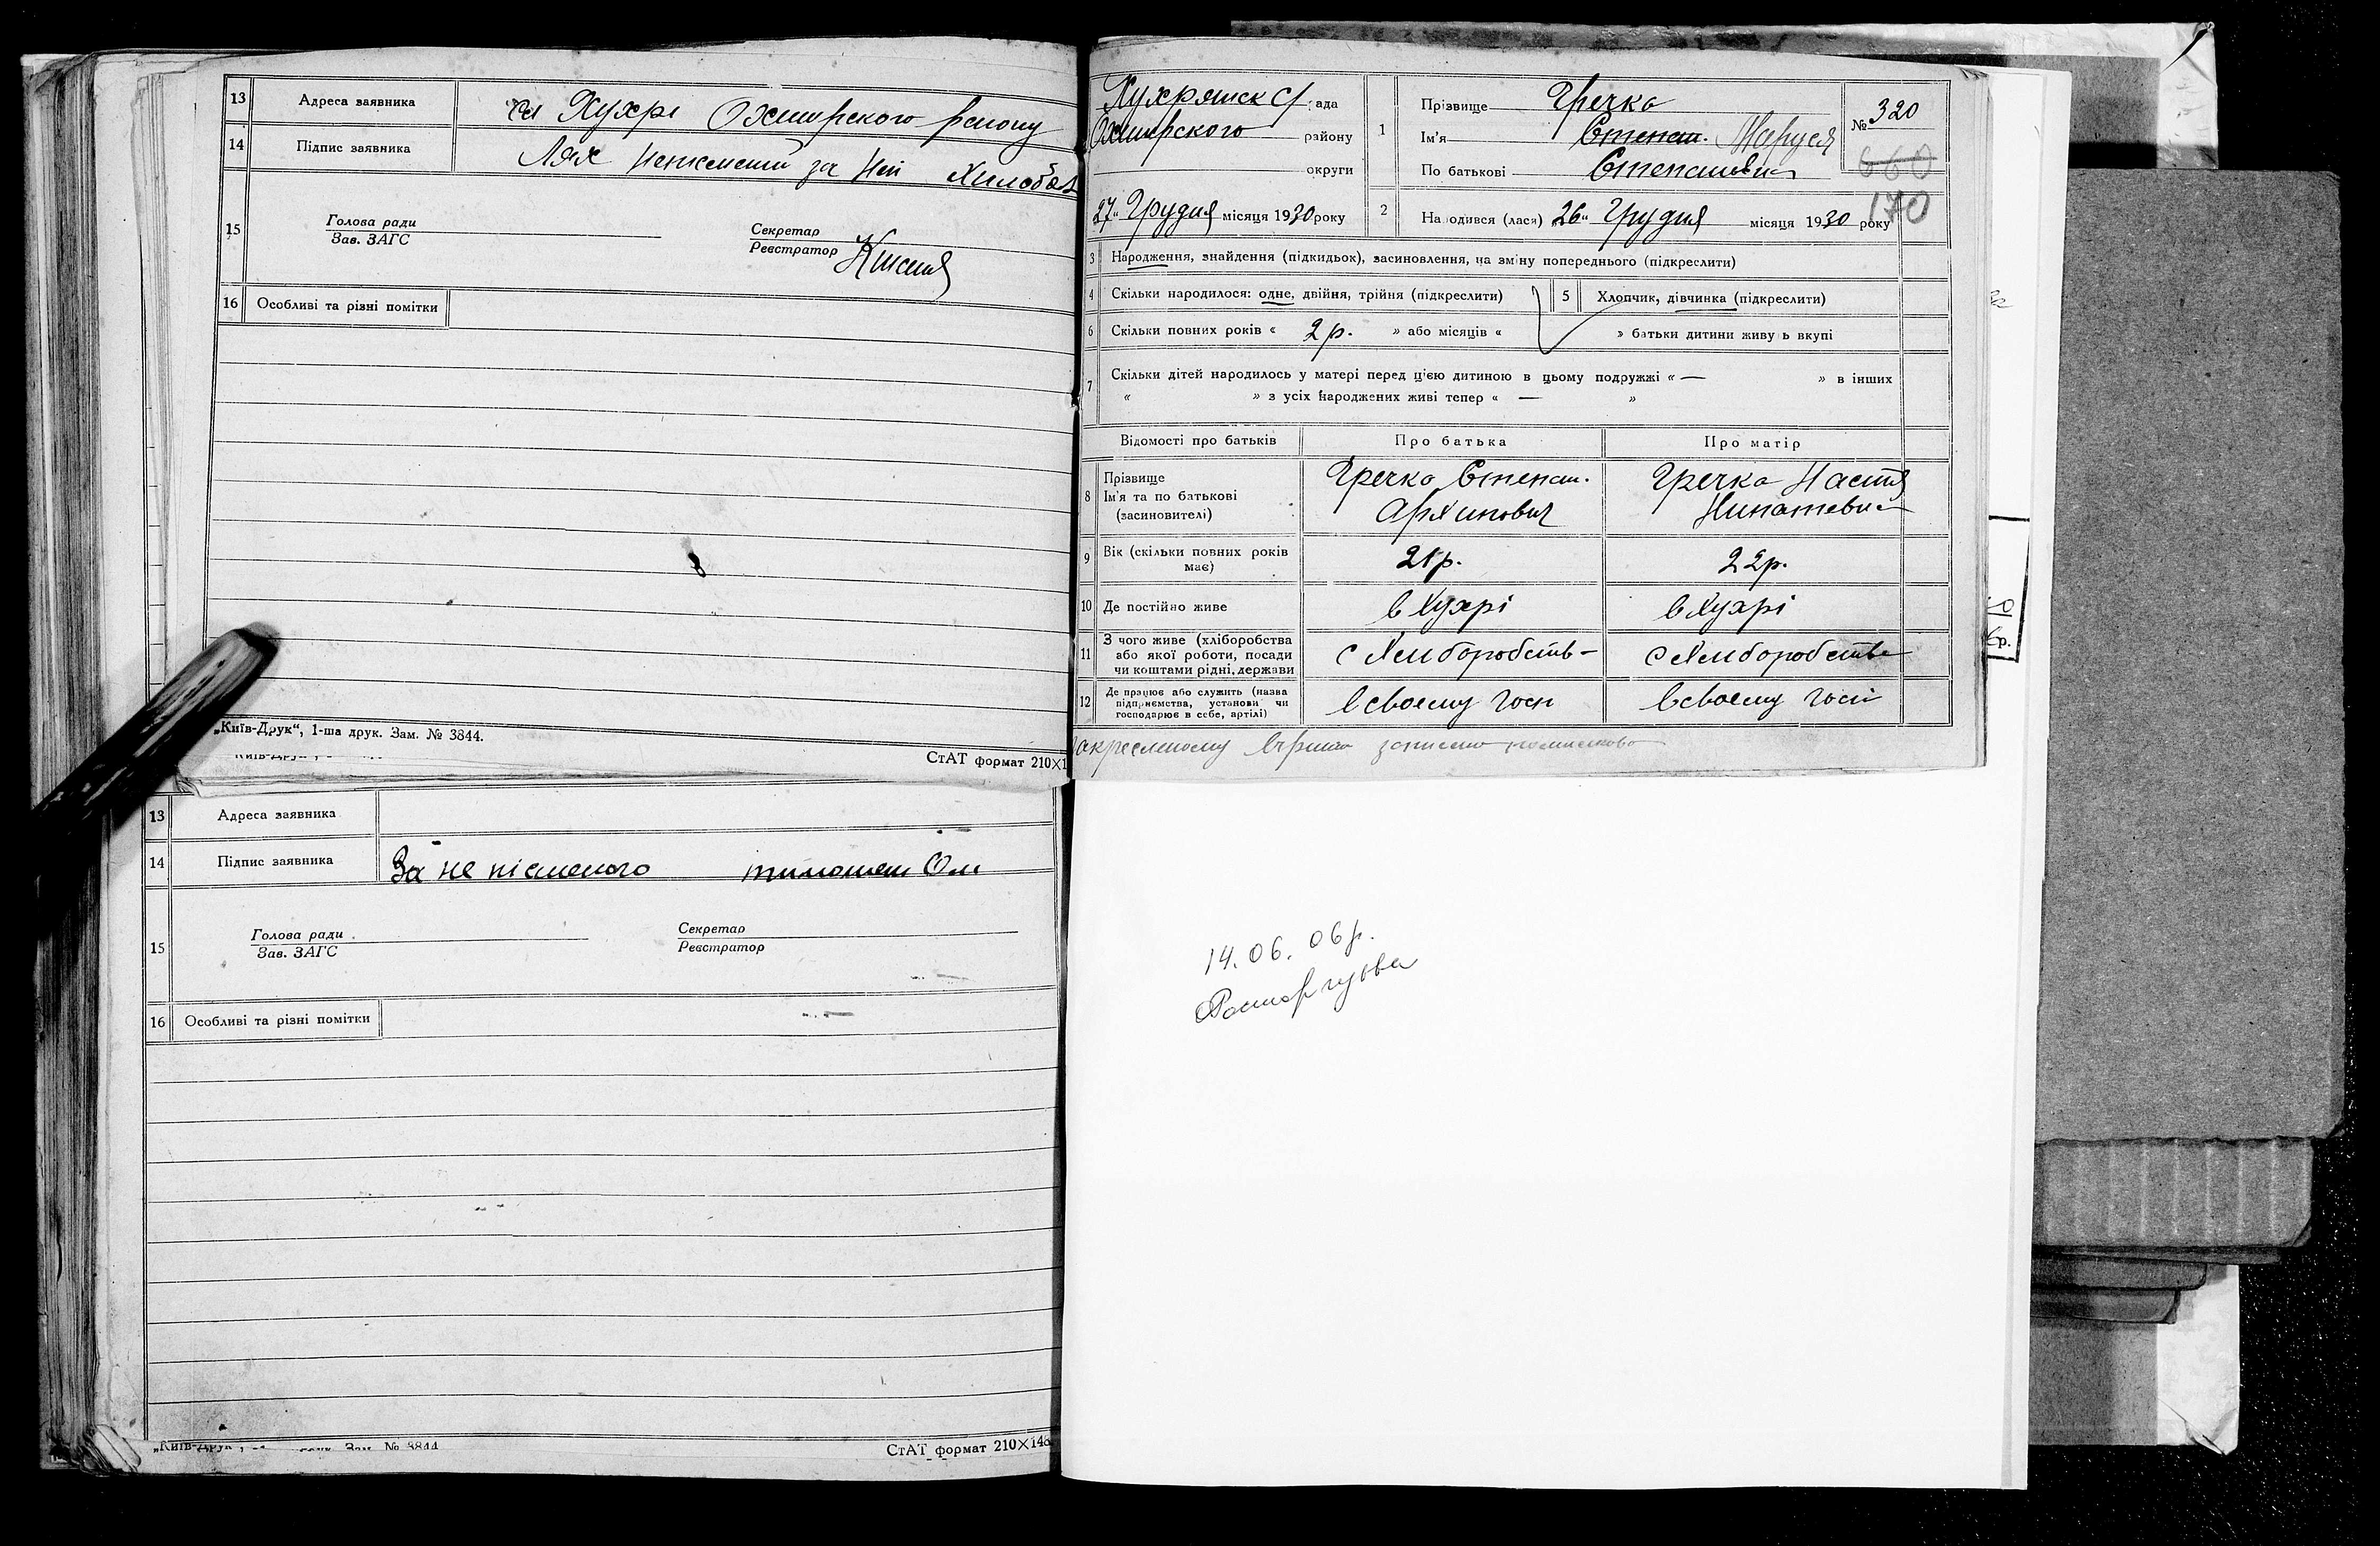 13 Адреса заявника сл Хухрі Охтирского району
14 Підпис заявника Лях за неї
15 Голова ради
Зав. ЗАГС
Секретар
Реєстратор
16 Особливі та різні помітки
„Київ-Друк“, 1-ша друк. Зам. № 3844.
СтАТ формат 210×1
13 Адреса заявника
14 Підпис заявника За не písменого
15 Голова ради
Зав. ЗАГС
Секретар
Реєстратор
16 Особливі та різні помітки
Зам. № 3844
СтАТ формат 210×148
Хухрянск С/рада
Охтирского району
округи
27 „ Грудня місяця 1930 року
1 Прізвище Гречка
Ім'я Степан. Маруся
По батькові Степановна
№ 320
660
170
2 Народився (лася) „26„ Грудня місяця 1930 року
3 Народження, знайдення (підкидьок), засиновлення, на зміну попереднього (підкреслити)
4 Скільки народилося: одне, двійня, трійня (підкреслити)
5 Хлопчик, дівчинка (підкреслити)
6 Скільки повних років « 2 р. » або місяців « » батьки дитини живуть вкупі
7 Скільки дітей народилось у матері перед цією дитиною в цьому подружжі « — » в інших
« » з усіх народжених живі тепер « — »
Відомості про батьків Про батька Про матір
8 Прізвище
Ім'я та по батькові
(засиновителі)
Гречка Степан.
Архипович
Гречка Настя
9 Вік (скільки повних років має) 21р. 22р.
10 Де постійно живе в Хухрі в Хухрі
11 З чого живе (хліборобства
або якої роботи, посади
чи коштами рідні, держави
с Хлиборобств- с Хлиборобства
12 Де працює або служить (назва
підприємства, установи чи
господарює в себе, артілі)
в своему госп в своему госп
закресленому вірити записано помилково
14.06.06р.